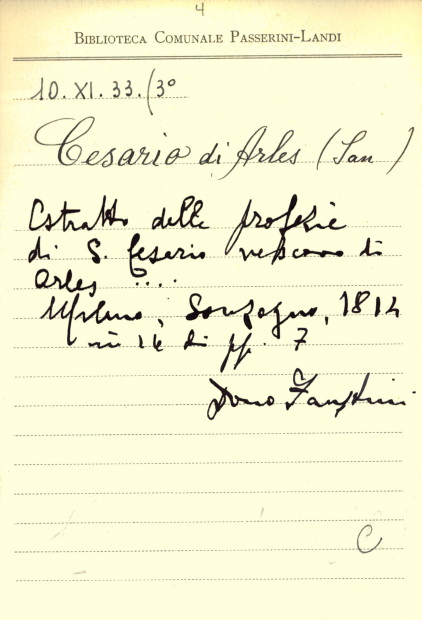 4
BIBLIOTECA COMUNALE PASSERINI-LANDI
10. XI. 33. (3°
Cesario di Arles (San)
Estratto delle profezie
di S. Cesario vescovo di
Arles ....
Milano, Sonzogno, 1814
in 16 di pp. 7
Dono Faustini
C